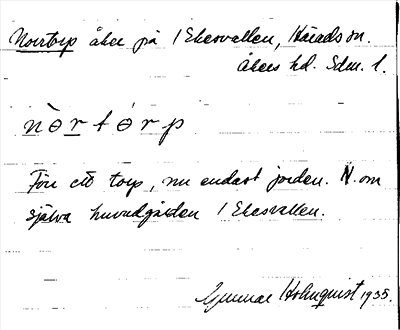 Norrtorp åker på 1 Ekesvallen, Härads sn.
Åkers hd. Sdm. l.
nòrtórp
Förr ett torp, nu endast jorden. N. om
själva huvudgården 1 Ekesvallen.
Gunnar Holmquist 1935.